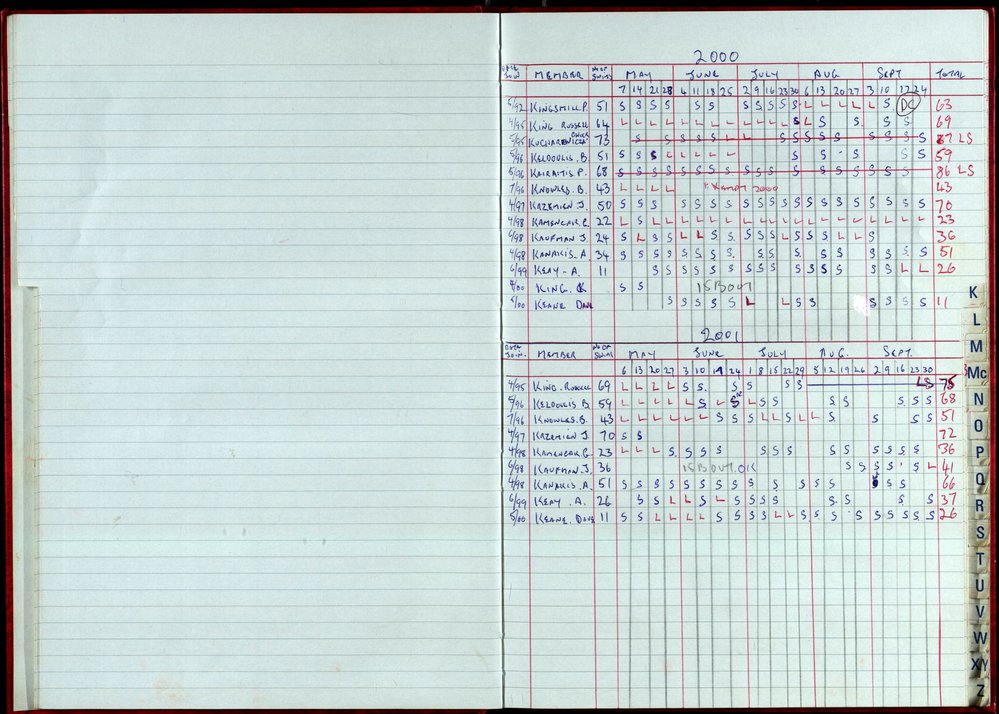 2000
DATE JOIN MEMBER NO OF SWIMS MAY JUNE JULY AUG SEPT TOTAL
7 14 21 28 4 11 18 25 2 9 16 23 30 6 13 20 27 3 10 17 24
5/92 KINGSMILL P. 51 S S S S S S S S S S S L L L L L S DC 63
4/95 KING RUSSELL 64 L L L L L L L L L L L L S L S S S S 69
5/95 73 S S S S S L L S S S S S S S S S 87 LS
5/96 KELDOULIS. B. 51 S S S L L L L L S S S S S 59
5/96 KAIRAITIS P. 68 S S S S S S S S S S S S S S S S S S S 86 LS
7/96 KNOWLES. B. 43 L L L L EXEMPT 2000 43
4/97 KAZEMIEN J. 50 S S S S S S S S S S S S S S S S S S S S 70
4/98 KAMENCAR. G. 22 L S L L L L L L L L L L L L L L L L L L L 23
6/98 KAUFMAN J. 24 S L S S L L S S S S S L S S S L L S 36
4/98 KANAKIS. A. 34 S S S S S S S S S S S S S S S S S 51
6/99 KEAY - A. 11 S S S S S S S S S S S S S S L L 26
4/00 KING. K S S ISBOUT
5/00 KEANE DAVE S S S S S L L S S S S S S 11
2001
DATE JOIN. MEMBER NO OF SWIMS MAY JUNE JULY AUG. SEPT.
6 13 20 27 3 10 17 24 1 8 15 22 29 5 12 19 26 2 9 16 23 30
4/95 KING. RUSSELL 69 L L L L S S S S S S LS 75
5/96 KELDOULIS B 59 L L L L L S L S L S S S S S S S 68
7/96 KNOWLES. B. 43 L L L L L L S S S L L S L L S S S S 51
4/97 KAZEMIEN J. 70 S S 72
4/98 KAMENCAR G. 23 L L L S S S S S S S S S S S S S 36
6/98 KAUFMAN. J. 36 ISBOUT. OK S S S S S L 41
4/98 KANAKIS. A. 51 S S S S S S S S S S S S S S S 66
6/99 KEAY . A. 26 S S L L S L S S S S S S S S 37
5/00 KEANE. DAVE 11 S S L L L L S S S S L L S S S S S S S S 26
K
L
M
Mc
N
O
P
Q
R
S
T
U
V
W
XY
Z